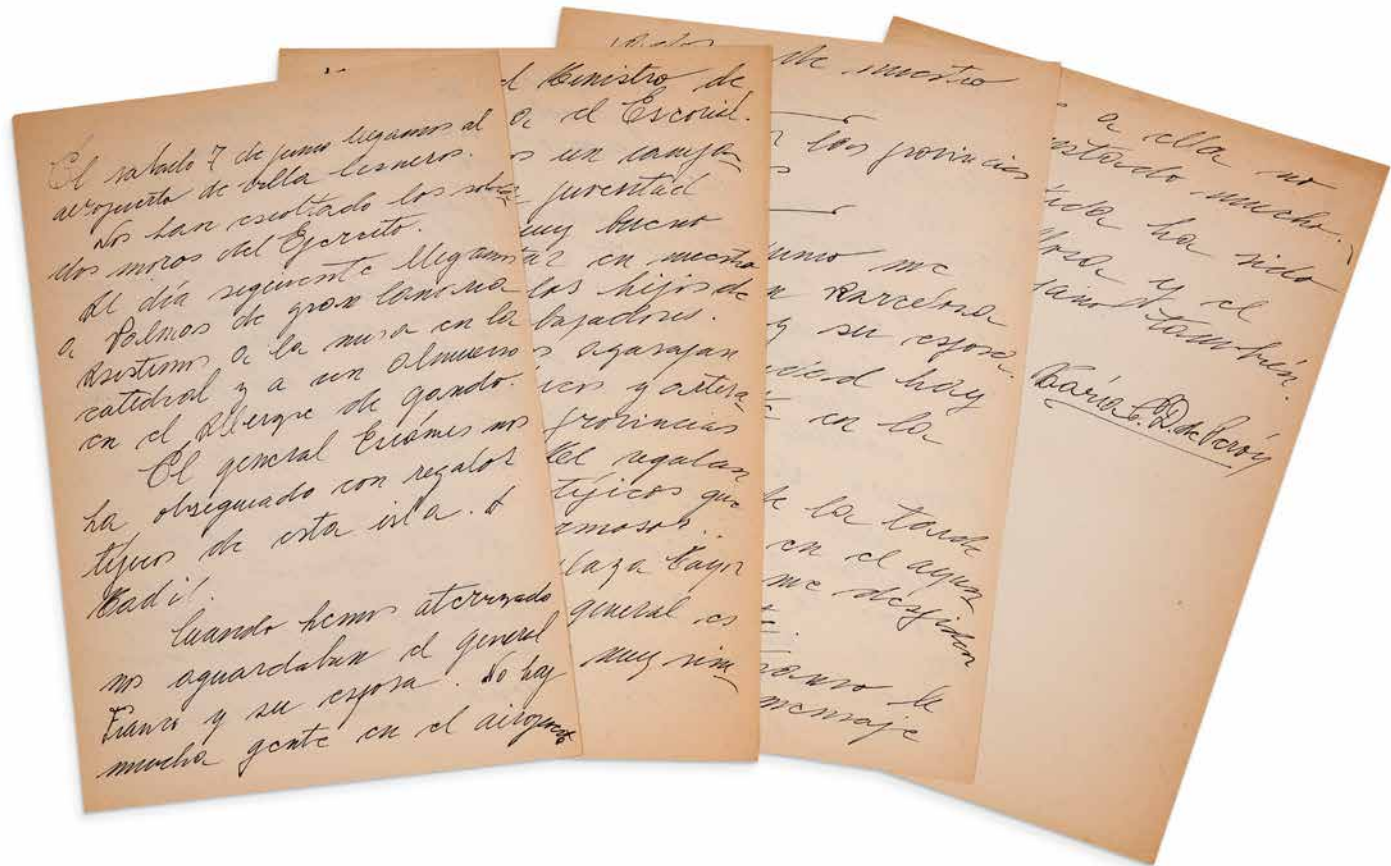 El sabado 7 de junio llegamos al
aeropuerto de Villa Cisneros.
Nos han escoltado los solda
dos moros del Ejercito.
Al día seguiente llegamos
a Palmas de gran Canaria
Asistimos a la misa en la
catedral y a un Almuerso
en el Albergue de gando.
El general Esiámes nos
ha obseguiado con regalos
típicos de esta isla. A
Madid.
Cuando hemos aterrizado
nos aguardaban el general
Franco y su esposa. No hay
mucha gente en el airopuerto
el Ministro de
a el Escorial.
un campa
juventud
muy bueno
en nuestra
los hijos de
bajadores.
agasajan
y artesa
provincias
regalan
típicos que
ermosos.
Plaza Mayor
general es
muy sim
de nuestro
las provincias
junio me
Barcelona
y su esposa.
hay
en la
de la tarde
en el ayun
me despiden
Franco le
mensaje
a ella no
gustado mucho.
tida ha sido
y el
tambien.
María E. D. de Perón